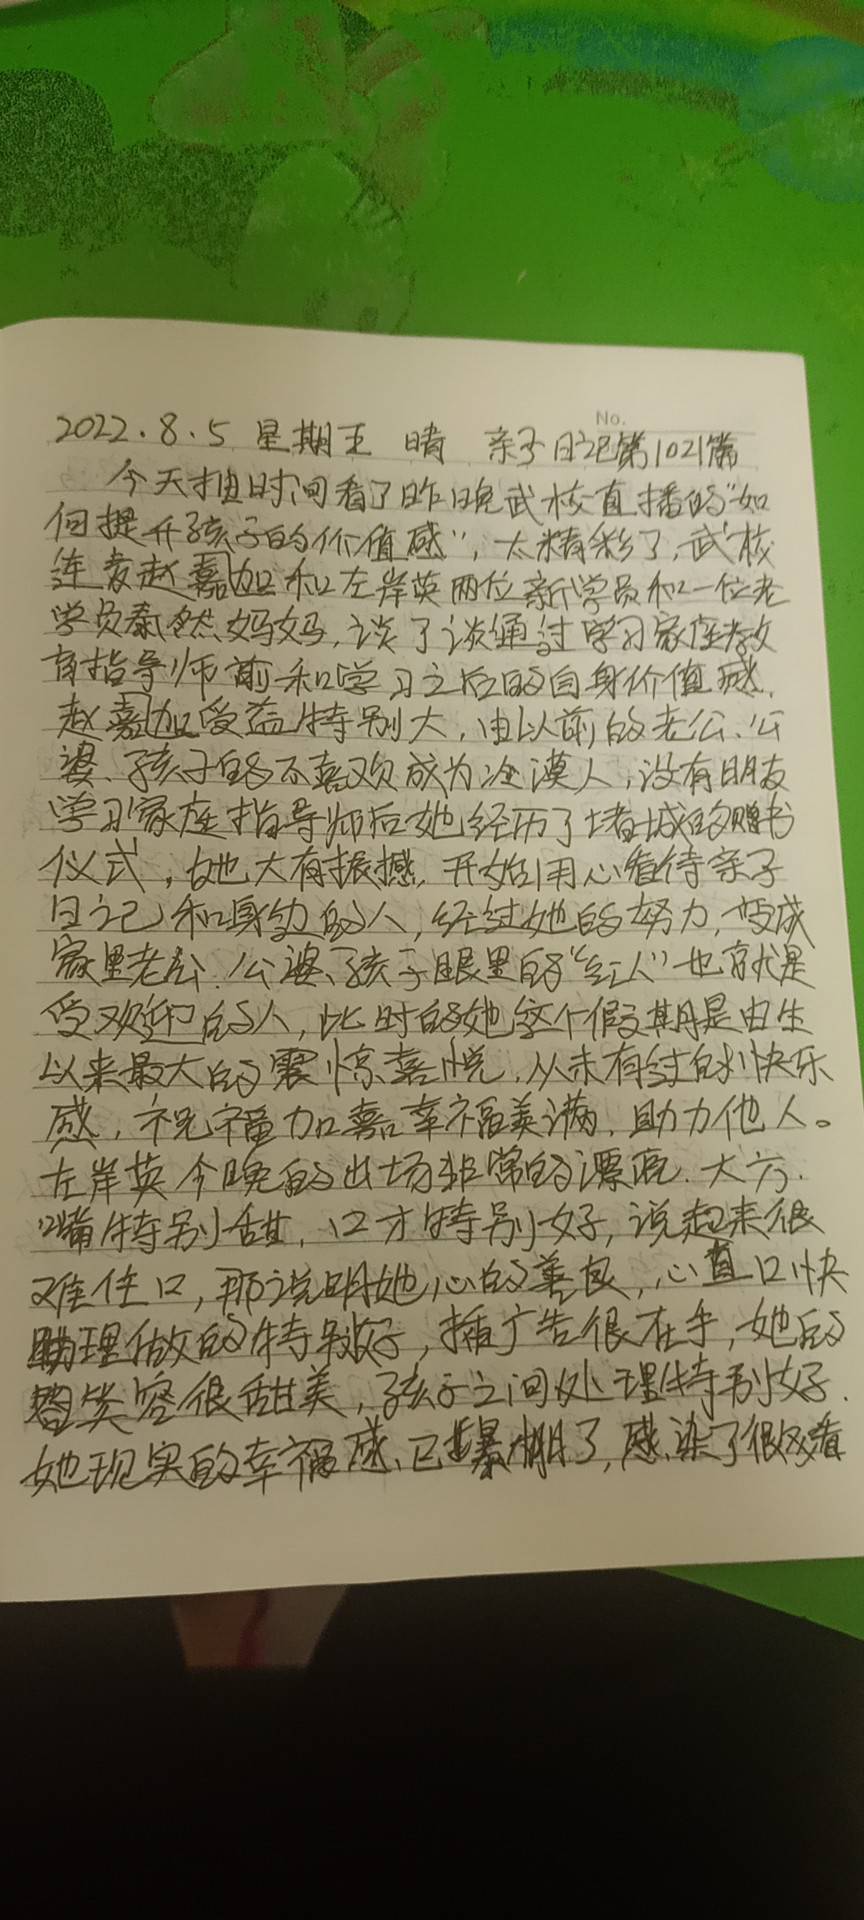 No.
2022.8.5 星期五 晴 亲子日记第1021篇
今天抽时间看了昨晚武校直播的"如
何提升孩子的价值感",太精彩了,武校
连麦赵嘉加和左岸英两位新学员和一位老
学员泰然妈妈,谈了谈通过学习家庭教
育指导师前和学习之后的自身价值感,
赵嘉加受益特别大,由以前的老公、公
婆、孩子的不喜欢成为冷漠人,没有朋友
学习家庭指导师后她经历了诸城的赠书
仪式,她大有振撼,开始用心看待亲子
日记和身边的人,经过她的努力,变成
家里老公、公婆、孩子眼里的"红人"也就是
受欢迎的人,此时的她这个假期是由生
以来最大的震惊喜悦,从未有过的快乐
感,祝福加嘉幸福美满,助力他人。
左岸英今晚的出场非常的漂亮、大方、
嘴特别甜,口才特别好,说起来很
难住口,那说明她心的善良,心直口快
助理做的特别好,插广告很在手,她的
笑容很甜美,孩子之间处理特别好.
她现实的幸福感、已爆棚了,感染了很多看